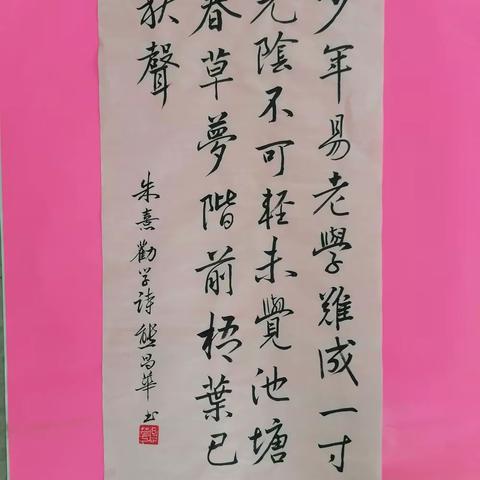 少年易老學難成一寸
光陰不可輕未覺池塘
春草夢階前梧葉已
秋聲
朱熹勸学詩熊昌華书